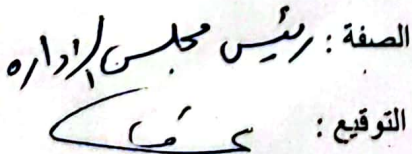 الصفة : رئيس مجلس الإداره
التوقيع :